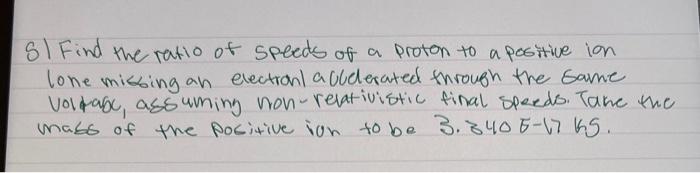 8) Find the ratio of speeds of a proton to a positive ion
(one missing an electron) accelerated through the same
voltage, assuming non-relativistic final speeds. Take the
mass of the positive ion to be 3.340 E-17 KG.